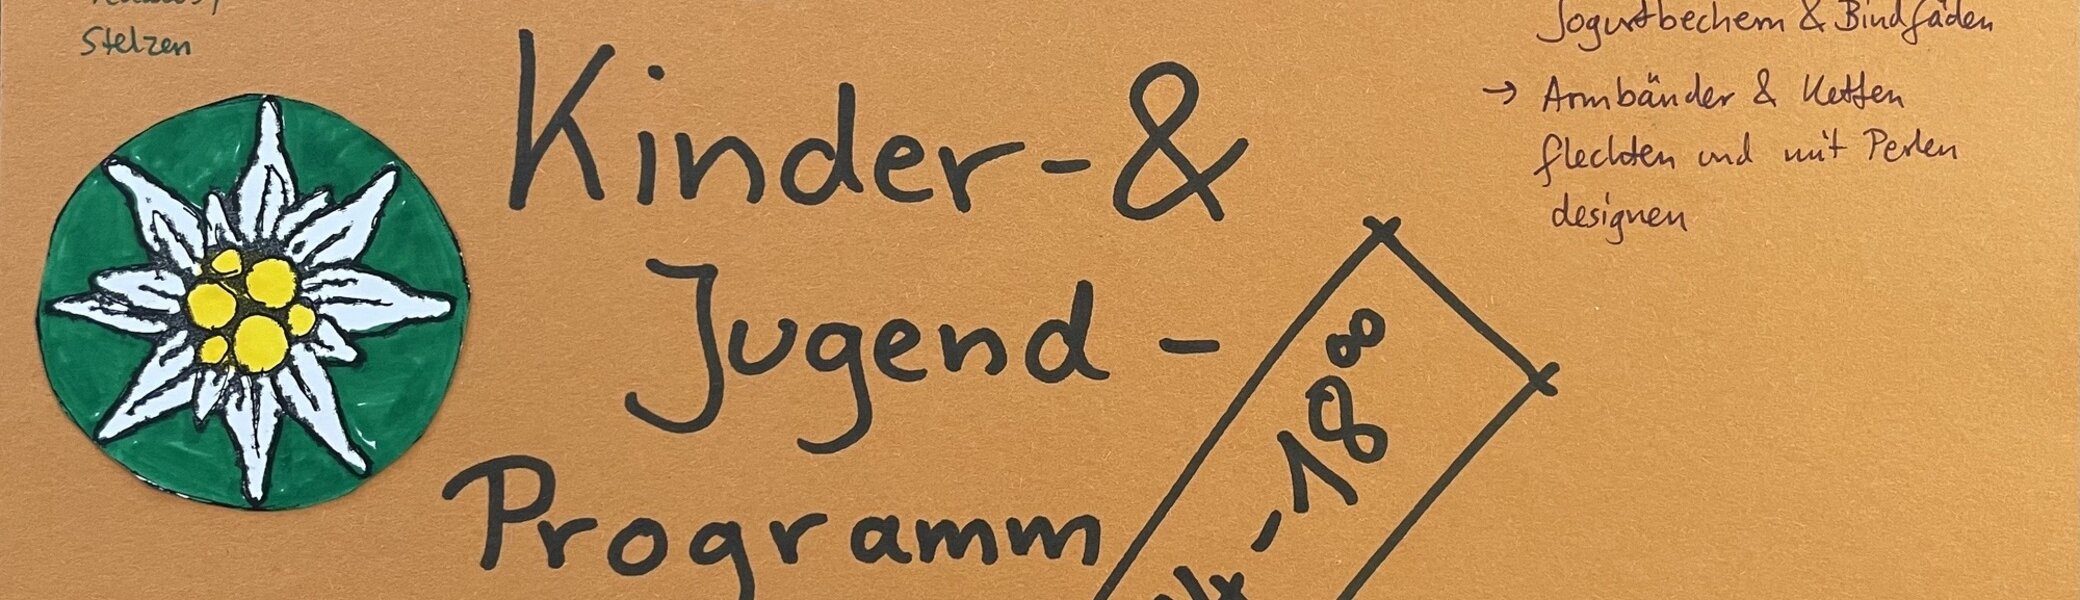 Stelzen
Kinder-&
Jugend-
Programm
-18⁰⁰
Jogurtbechern & Bindfäden
→ Armbänder & Ketten
flechten und mit Perlen
designen